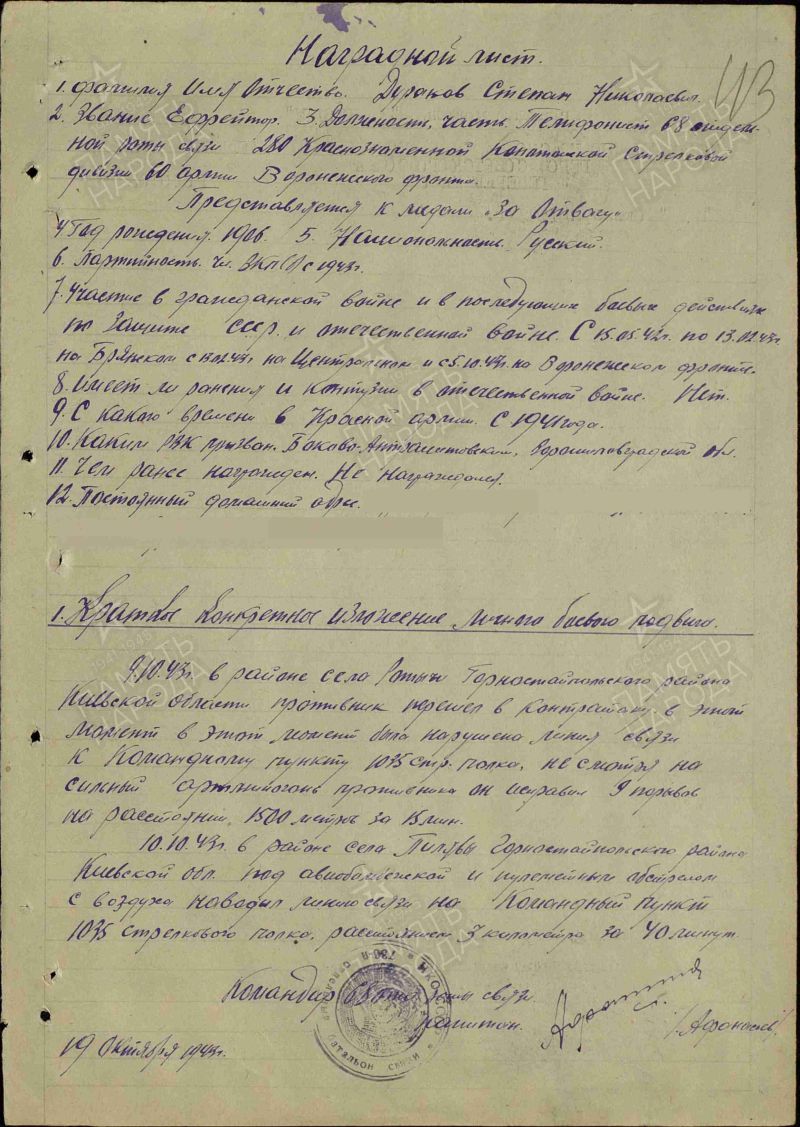 Наградной лист.
113
1. Фамилия Имя Отчество. Степан Николаевич.
2. Звание Ефрейтор. 3. Должность, часть. Телефонист 68 отдель-
ной роты связи 280 Краснознаменной Конотопской Стрелковой
дивизии 60 армии Воронежского фронта.
Представляется к медали "За Отвагу"
4 Год рождения. 1906. 5. Национальность. Русский.
6. Партийность. Чл. ВКП(б) с 1943г.
7. Участие в гражданской войне и в последующих боевых действиях
по защите СССР. и отечественной войне. С 15.05.42г. по 13.02.43г.
на Брянском с 13.02.43г. на Центральном и с 5.10.43г. на Воронежском фронте.
8. Имеет ли ранения и контузии в отечественной войне. Нет.
9. С какого времени в Красной армии. С 1941 года.
10. Каким РВК призван. Боково-Антрацитовским, Ворошиловградской обл.
11. Чем ранее награжден. Не награждался.
12. Постоянный домашний адрес.
1. Краткое конкретное изложение личного боевого подвига.
9.10.43г. в районе села Ротичи Горностайпольского района
Киевской области противник перешел в контратаку. в этот
момент в этот момент была нарушена линия связи
к Командному пункту 1035 стр. полка, не смотря на
сильный артминогонь противника он исправил 9 порывов
на расстоянии 1500 метръ за 15 мин.
10.10.43г. в районе села Горностайпольского района
Киевской обл. под авиобомбежкой и пулеметным обстрелом
с воздуха наводил линию связи на Командный пункт
1035 стрелкового полка, расстоянием 3 километра за 40 минут.
Командир 68 роты связи
Капитан. /Афанасьев/.
19 Октября 1943г.
ПАМЯТЬ НАРОДА